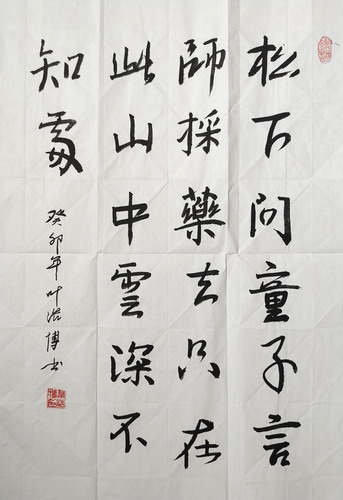 松下问童子言
師採藥去只在
此山中雲深不
知處
癸卯年叶浩博书